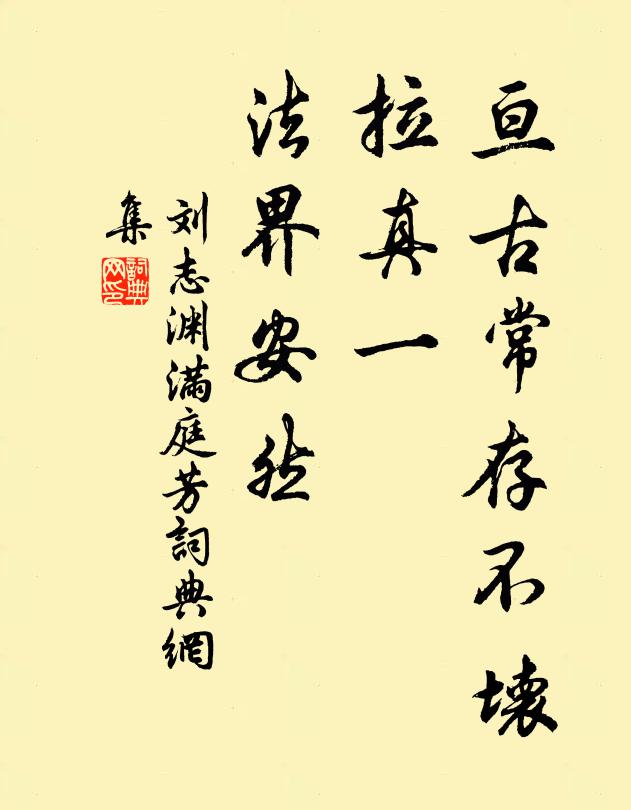 亘古常存不壞
拉真一
法界安然
刘志渊满庭芳詞典網
集
詞典网印